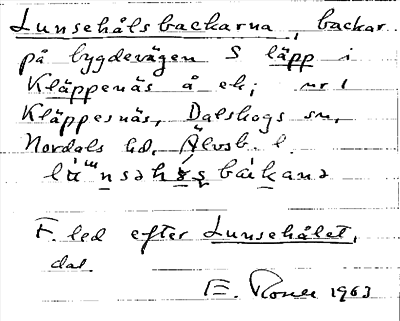 Lunsehålsbackarna, backar
på bygdevägen S läpp i
Kläppenäs å ek; nr 1
Kläppesnäs, Dalskogs sn,
Nordals hd. Älvsb. l.
F. led efter Lunsehålet,
dal
E. 1963